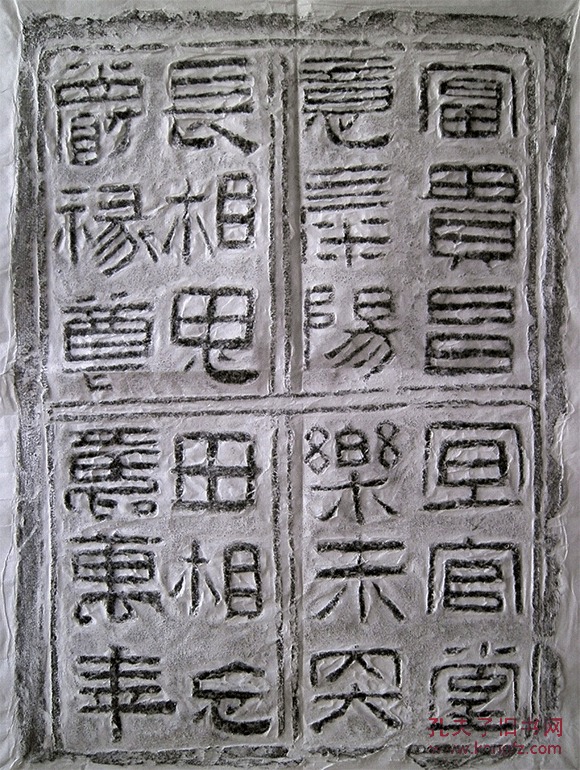 富貴昌宜宮堂
意氣陽樂未央
長相思毋相忘
爵祿尊壽萬年
孔夫子旧书网
www.kongfz.com